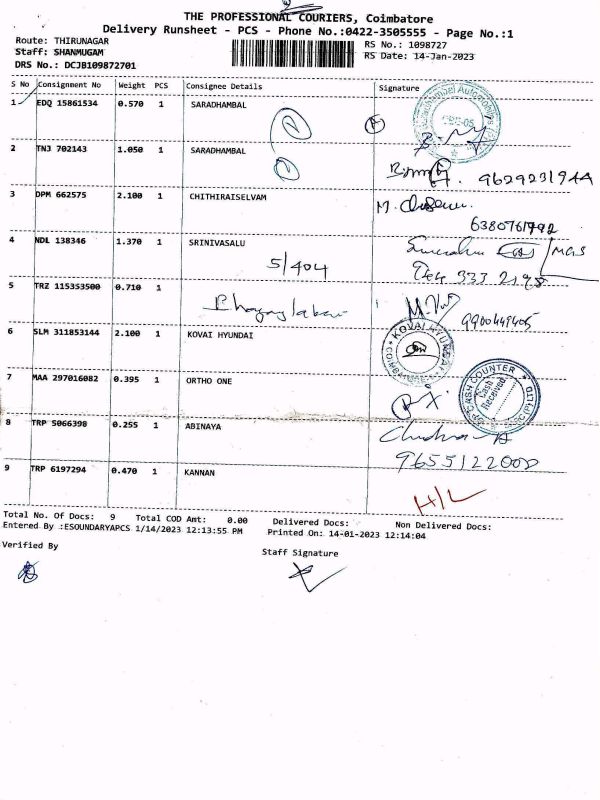 THE PROFESSIONAL COURIERS, Coimbatore
Delivery Runsheet - PCS - Phone No.:0422-3505555 - Page No.:1
Route: THIRUNAGAR
RS No.: 1098727
Staff: SHANMUGAM
RS Date: 14-Jan-2023
DRS No.: DCJB109872701
S No Consignment No Weight PCS Consignee Details Signature
1 EDQ 15861534 0.570 1 SARADHAMBAL
2 TNJ 702143 1.050 1 SARADHAMBAL
9629231944
3 DPM 662575 2.100 1 CHITHIRAISELVAM M.
6380761792
4 NDL 138346 1.370 1 SRINIVASALU
5/404
333 2198
5 TRZ 115353500 0.710 1
9900449405
6 SLM 311853144 2.100 1 KOVAI HYUNDAI
KOVAI HYUNDAI
7 MAA 297016082 0.395 1 ORTHO ONE
CASH COUNTER
Cash Received
8 TRP 5066398 0.255 1 ABINAYA
9655122000
9 TRP 6197294 0.470 1 KANNAN
H/L
Total No. Of Docs: 9 Total COD Amt: 0.00 Delivered Docs: Non Delivered Docs:
Entered By :ESOUNDARYAPCS 1/14/2023 12:13:55 PM Printed On: 14-01-2023 12:14:04
Verified By
Staff Signature